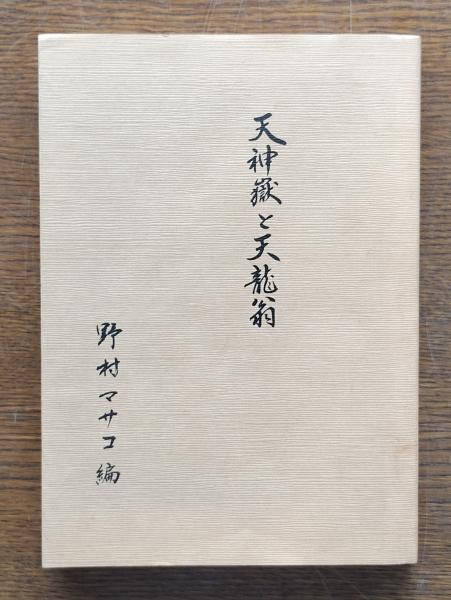 天神嶽と天龍翁
野村マサコ編